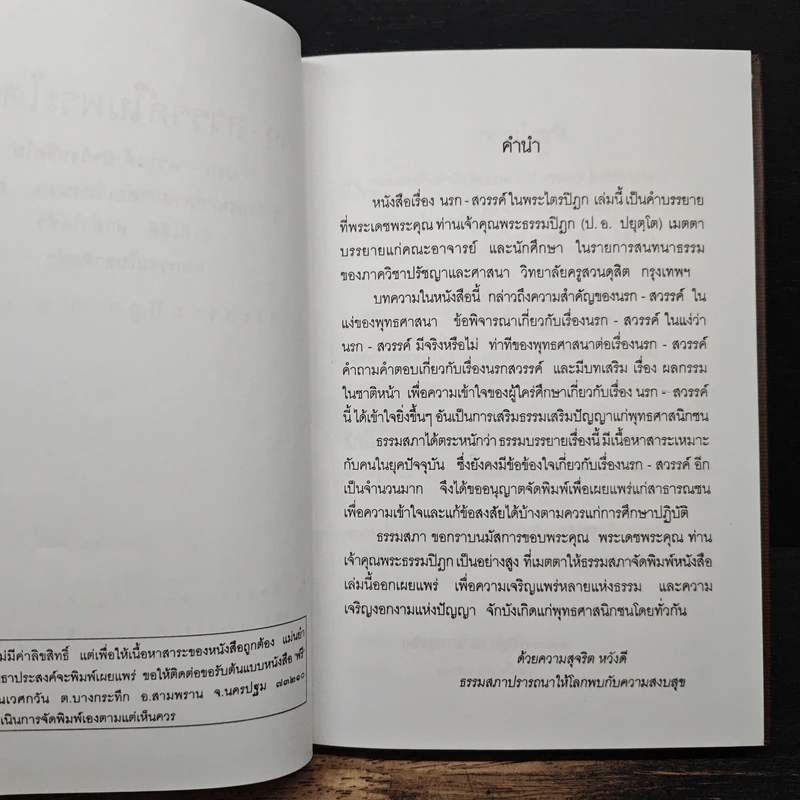 ไม่มีค่าลิขสิทธิ์ แต่เพื่อให้เนื้อหาสาระของหนังสือถูกต้อง แม่นยำ
ธาประสงค์จะพิมพ์เผยแพร่ ขอให้ติดต่อขอรับต้นแบบหนังสือ ฟรี
นเวศกวัน ต.บางกระทึก อ.สามพราน จ.นครปฐม ๗๓๒๑๐
เนินการจัดพิมพ์เองตามแต่เห็นควร
คำนำ
หนังสือเรื่อง นรก - สวรรค์ ในพระไตรปิฎก เล่มนี้ เป็นคำบรรยาย
ที่พระเดชพระคุณ ท่านเจ้าคุณพระธรรมปิฎก (ป. อ. ปยุตฺโต) เมตตา
บรรยายแก่คณะอาจารย์ และนักศึกษา ในรายการสนทนาธรรม
ของภาควิชาปรัชญาและศาสนา วิทยาลัยครูสวนดุสิต กรุงเทพฯ
บทความในหนังสือนี้ กล่าวถึงความสำคัญของนรก - สวรรค์ ใน
แง่ของพุทธศาสนา ข้อพิจารณาเกี่ยวกับเรื่องนรก - สวรรค์ ในแง่ว่า
นรก - สวรรค์ มีจริงหรือไม่ ท่าทีของพุทธศาสนาต่อเรื่องนรก - สวรรค์
คำถามคำตอบเกี่ยวกับเรื่องนรกสวรรค์ และมีบทเสริม เรื่อง ผลกรรม
ในชาติหน้า เพื่อความเข้าใจของผู้ใคร่ศึกษาเกี่ยวกับเรื่อง นรก - สวรรค์
นี้ ได้เข้าใจยิ่งขึ้นๆ อันเป็นการเสริมธรรมเสริมปัญญาแก่พุทธศาสนิกชน
ธรรมสภาได้ตระหนักว่า ธรรมบรรยายเรื่องนี้ มีเนื้อหาสาระเหมาะ
กับคนในยุคปัจจุบัน ซึ่งยังคงมีข้อข้องใจเกี่ยวกับเรื่องนรก - สวรรค์ อีก
เป็นจำนวนมาก จึงได้ขออนุญาตจัดพิมพ์เพื่อเผยแพร่แก่สาธารณชน
เพื่อความเข้าใจและแก้ข้อสงสัยได้บ้างตามควรแก่การศึกษาปฏิบัติ
ธรรมสภา ขอกราบนมัสการขอบพระคุณ พระเดชพระคุณ ท่าน
เจ้าคุณพระธรรมปิฎก เป็นอย่างสูง ที่เมตตาให้ธรรมสภาจัดพิมพ์หนังสือ
เล่มนี้ออกเผยแพร่ เพื่อความเจริญแพร่หลายแห่งธรรม และความ
เจริญงอกงามแห่งปัญญา จักบังเกิดแก่พุทธศาสนิกชนโดยทั่วกัน
ด้วยความสุจริต หวังดี
ธรรมสภาปรารถนาให้โลกพบกับความสงบสุข